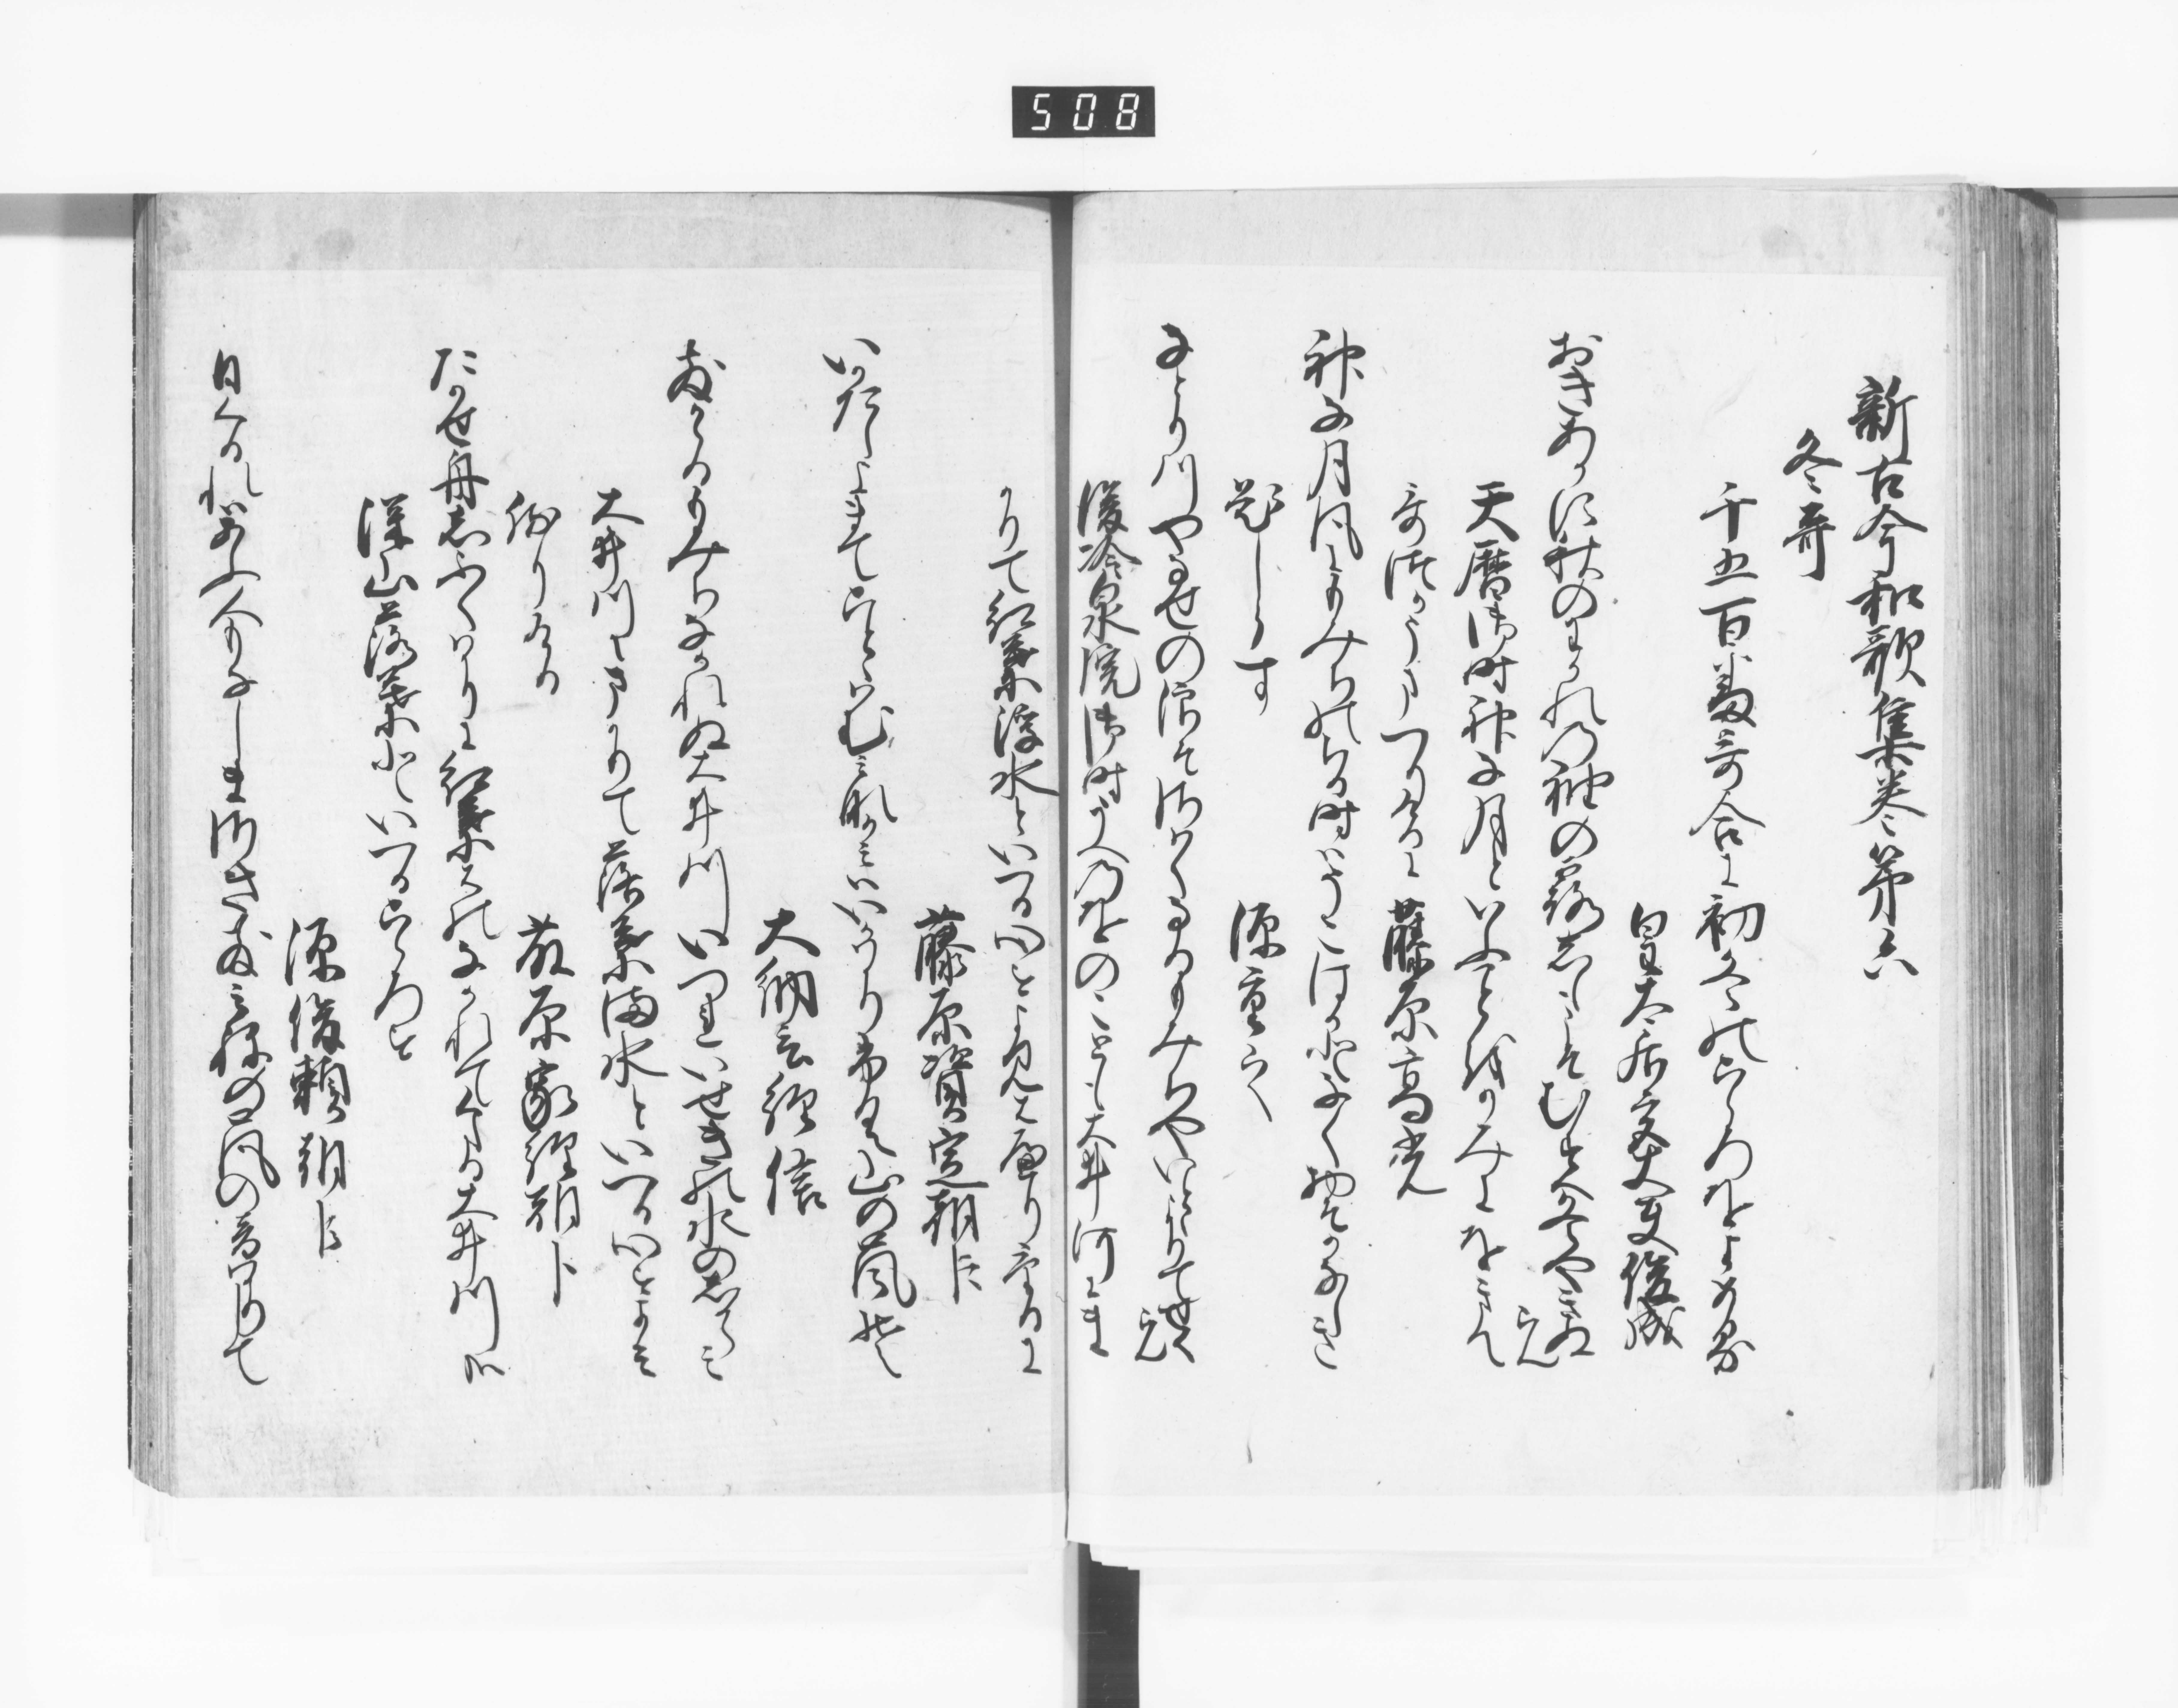 508
新古今和歌集巻第六
冬哥
千五百番哥合に初冬のこゝろをよめる
皇太后宮大夫俊成
おきあかす秋のわかれの袖の露霜こそむすへ冬やきぬらん
天暦御時神な月といふことをかみにをきて
哥つかうまつりけるに 藤原高光
神な月風にもみちのちる時はそこはかとなく物そかなしき
題しらす
源重之
なとり川やなせの浪そさはくなるもみちやいとゝよりてせくらん
後冷泉院御時うへのをのことも大井河にま
かりて紅葉浮水といへる心をよみ侍りけるに
藤原資宗朝臣
いかたしよまてこととはむみなかみはいかはかりふく山の嵐そ
大納言経信
ちりかゝるもみちなかれぬ大井川いつれゐせきの水のしからみ
大井川にまかりて落葉満水といへる心をよみ
侍りける
藤原家経朝臣
たかせ舟しふくはかりに紅葉はのなかれてくたる大井川哉
深山落葉といへるこゝろを
源俊頼朝臣
日くるれはあふ人もなしまさき散みねの嵐の音はかりして